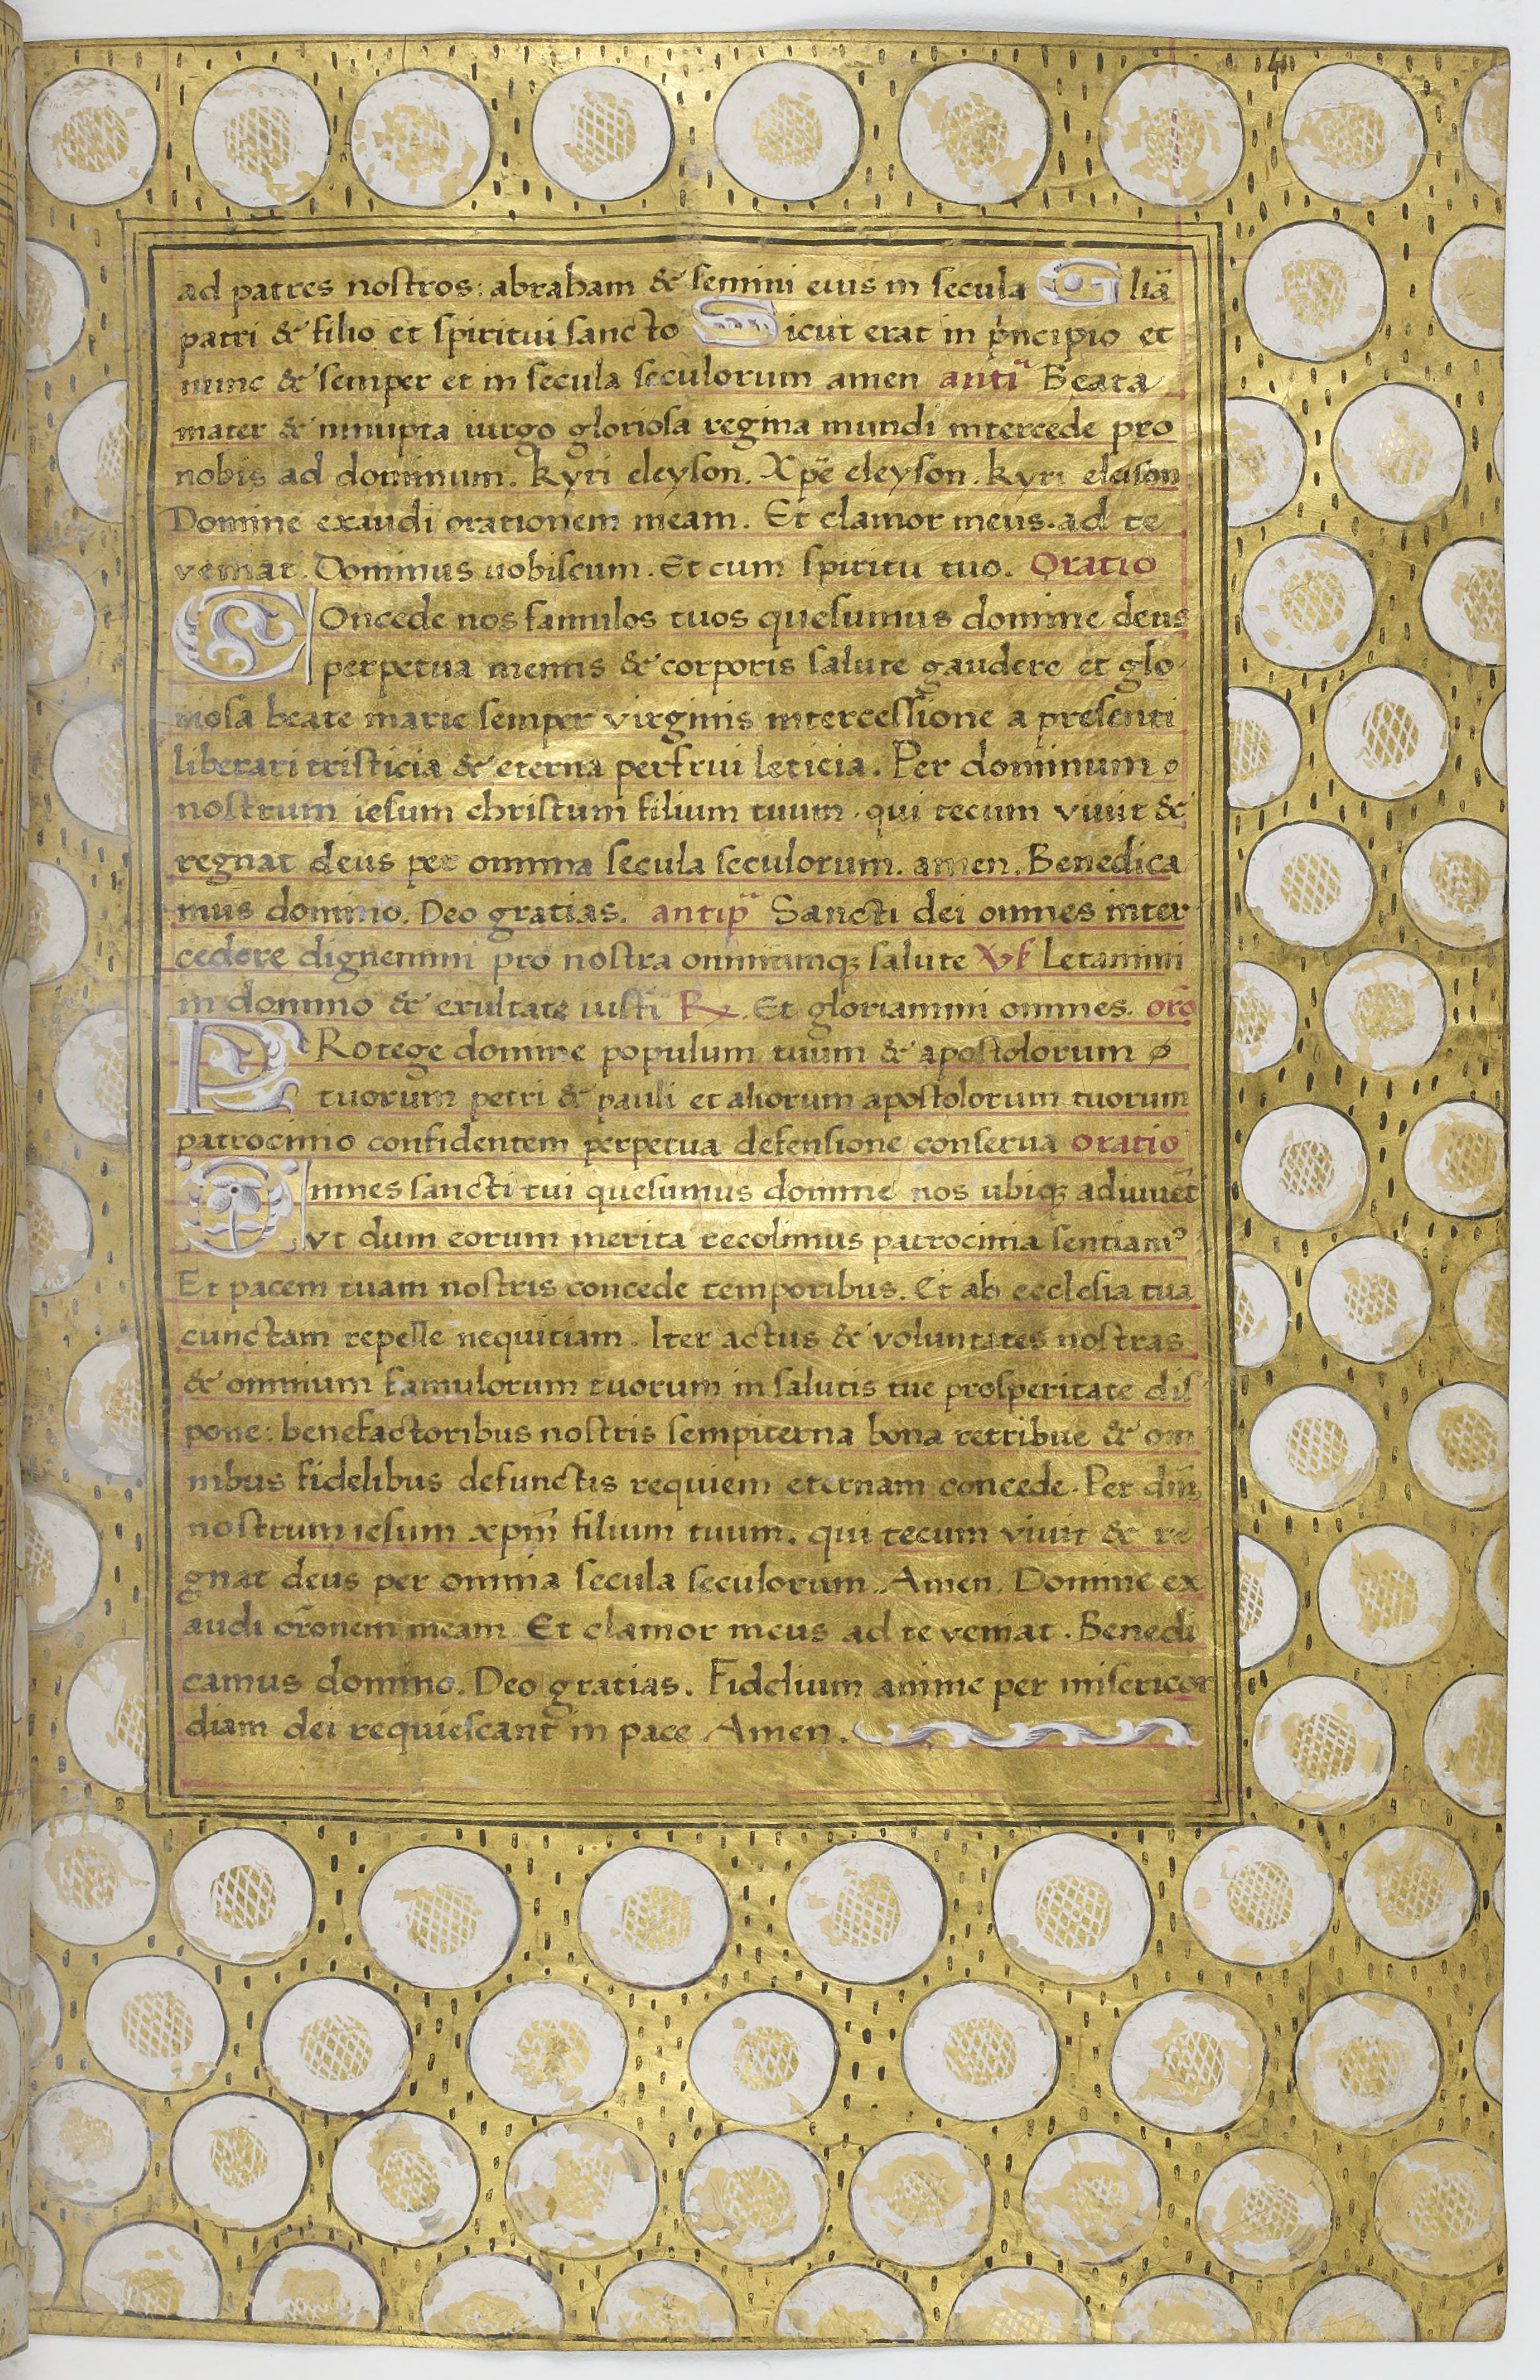 ad patres nostros: abraham & semini eius in secula Gliā
patri & filio et spiritui sancto Sicut erat in pncipio et
nunc & semper et in secula seculorum amen anti Beata
mater & innupta uirgo gloriosa regina mundi intercede pro
nobis ad dominum. kyri eleyson. Xpē eleyson. kyri eleison
Domine exaudi orationem meam. Et clamor meus. ad te
veniat. Dominus uobiscum. Et cum spiritu tuo. Oratio
COncede nos famulos tuos quesumus domine deus
perpetua mentis & corporis salute gaudere et glo
riosa beate marie semper virginis intercessione a presenti
liberari tristicia & eterna perfrui leticia. Per dominum
nostrum iesum christum filium tuum. qui tecum viuit &
regnat deus per omnia secula seculorum. amen. Benedica
mus domino. Deo gratias. antip Sancti dei omnes inter
cedere dignemini pro nostra omniumqꝫ salute V Letamini
in domino & exultate iusti R. Et gloriamini omnes. orō
PRotege domine populum tuum & apostolorum
tuorum petri & pauli et aliorum apostolorum tuorum
patrocinio confidentem perpetua defensione conserua oratio
Omnes sancti tui quesumus domine nos ubiqꝫ adiuuēt
vt dum eorum merita recolimus patrocinia sentiamꝰ
Et pacem tuam nostris concede temporibus. Et ab ecclesia tua
cunctam repelle nequitiam. Iter actus & voluntates nostras
& omnium famulorum tuorum in salutis tue prosperitate dis
pone: benefactoribus nostris sempiterna bona retribue & om
nibus fidelibus defunctis requiem eternam concede. Per dm̄
nostrum iesum xpm̄ filium tuum. qui tecum viuit & re
gnat deus per omnia secula seculorum. Amen. Domine ex
audi orōnem meam Et clamor meus ad te veniat. Benedi
camus domino. Deo gratias. Fidelium anime per misericor
diam dei requiescant in pace Amen.